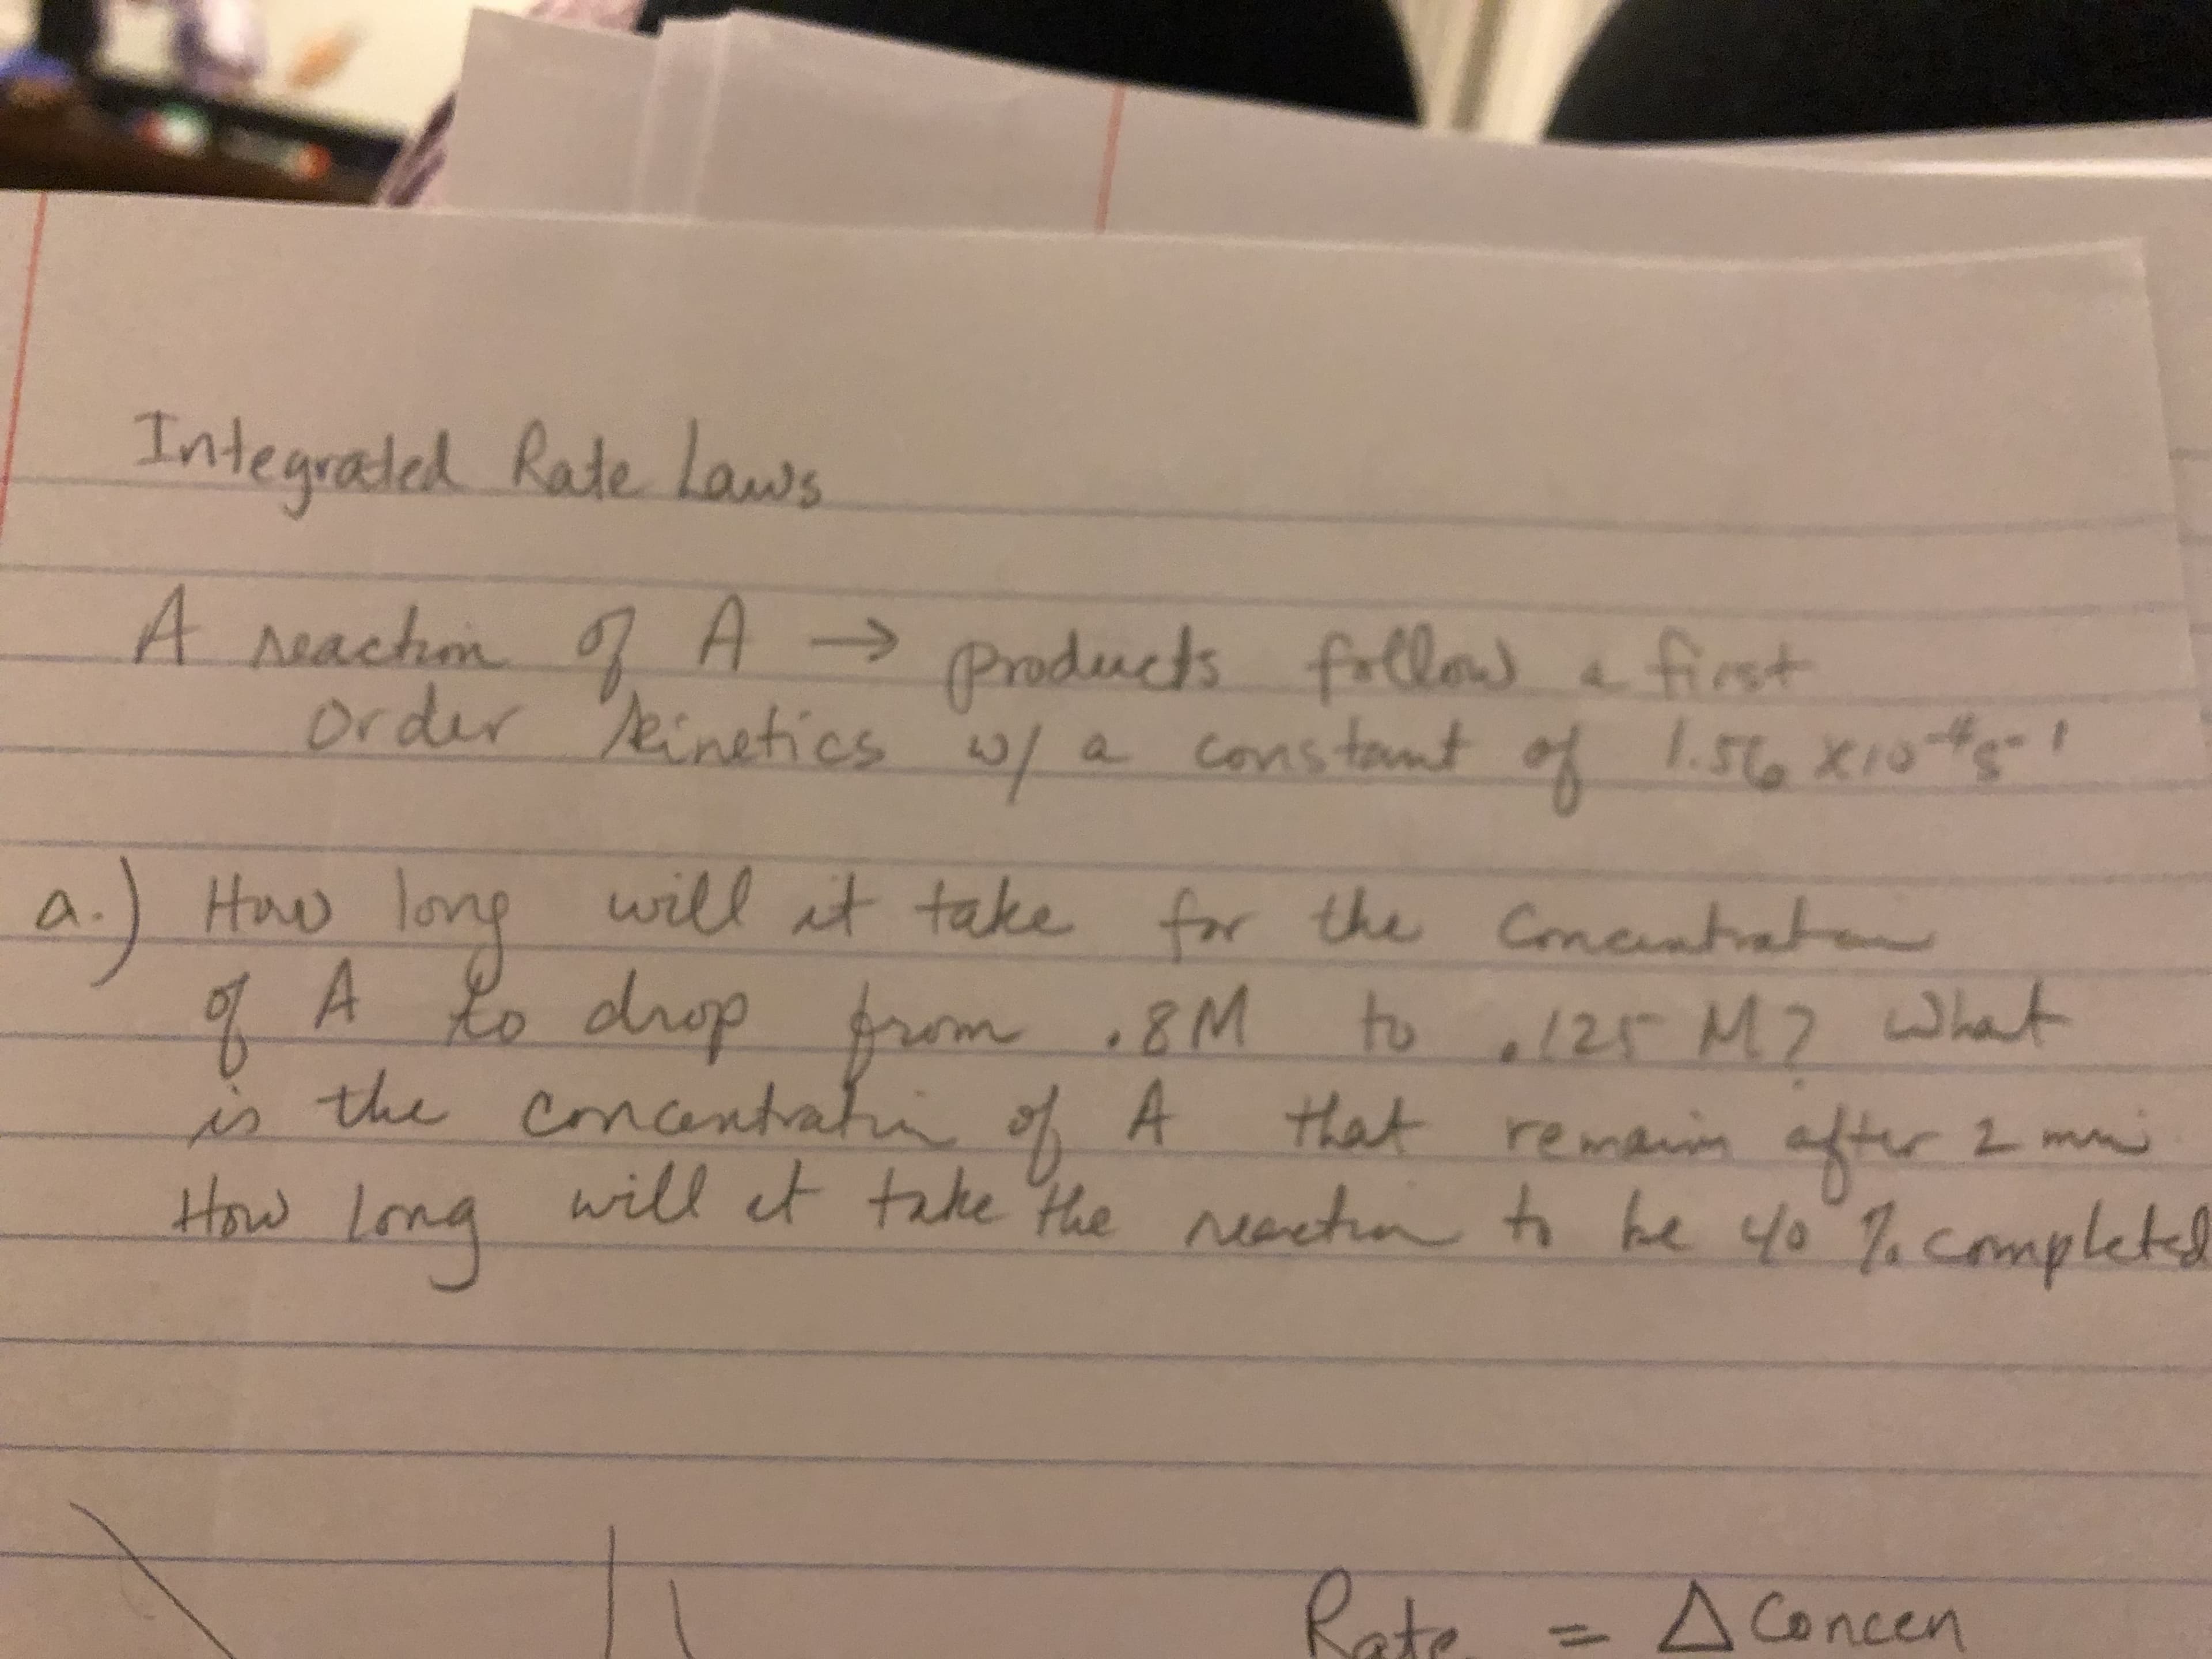 Integrated Rate Laws
A reaction of A → products follow a first
order kinetics w/ a constant of 1.56 x10⁻⁴s⁻¹
a.) How long will it take for the concentration
of A to drop from .8M to .125 M? What
is the concentration of A that remain after 2 min
How long will it take the reaction to be 40 % completed
Rate = Δ Concen